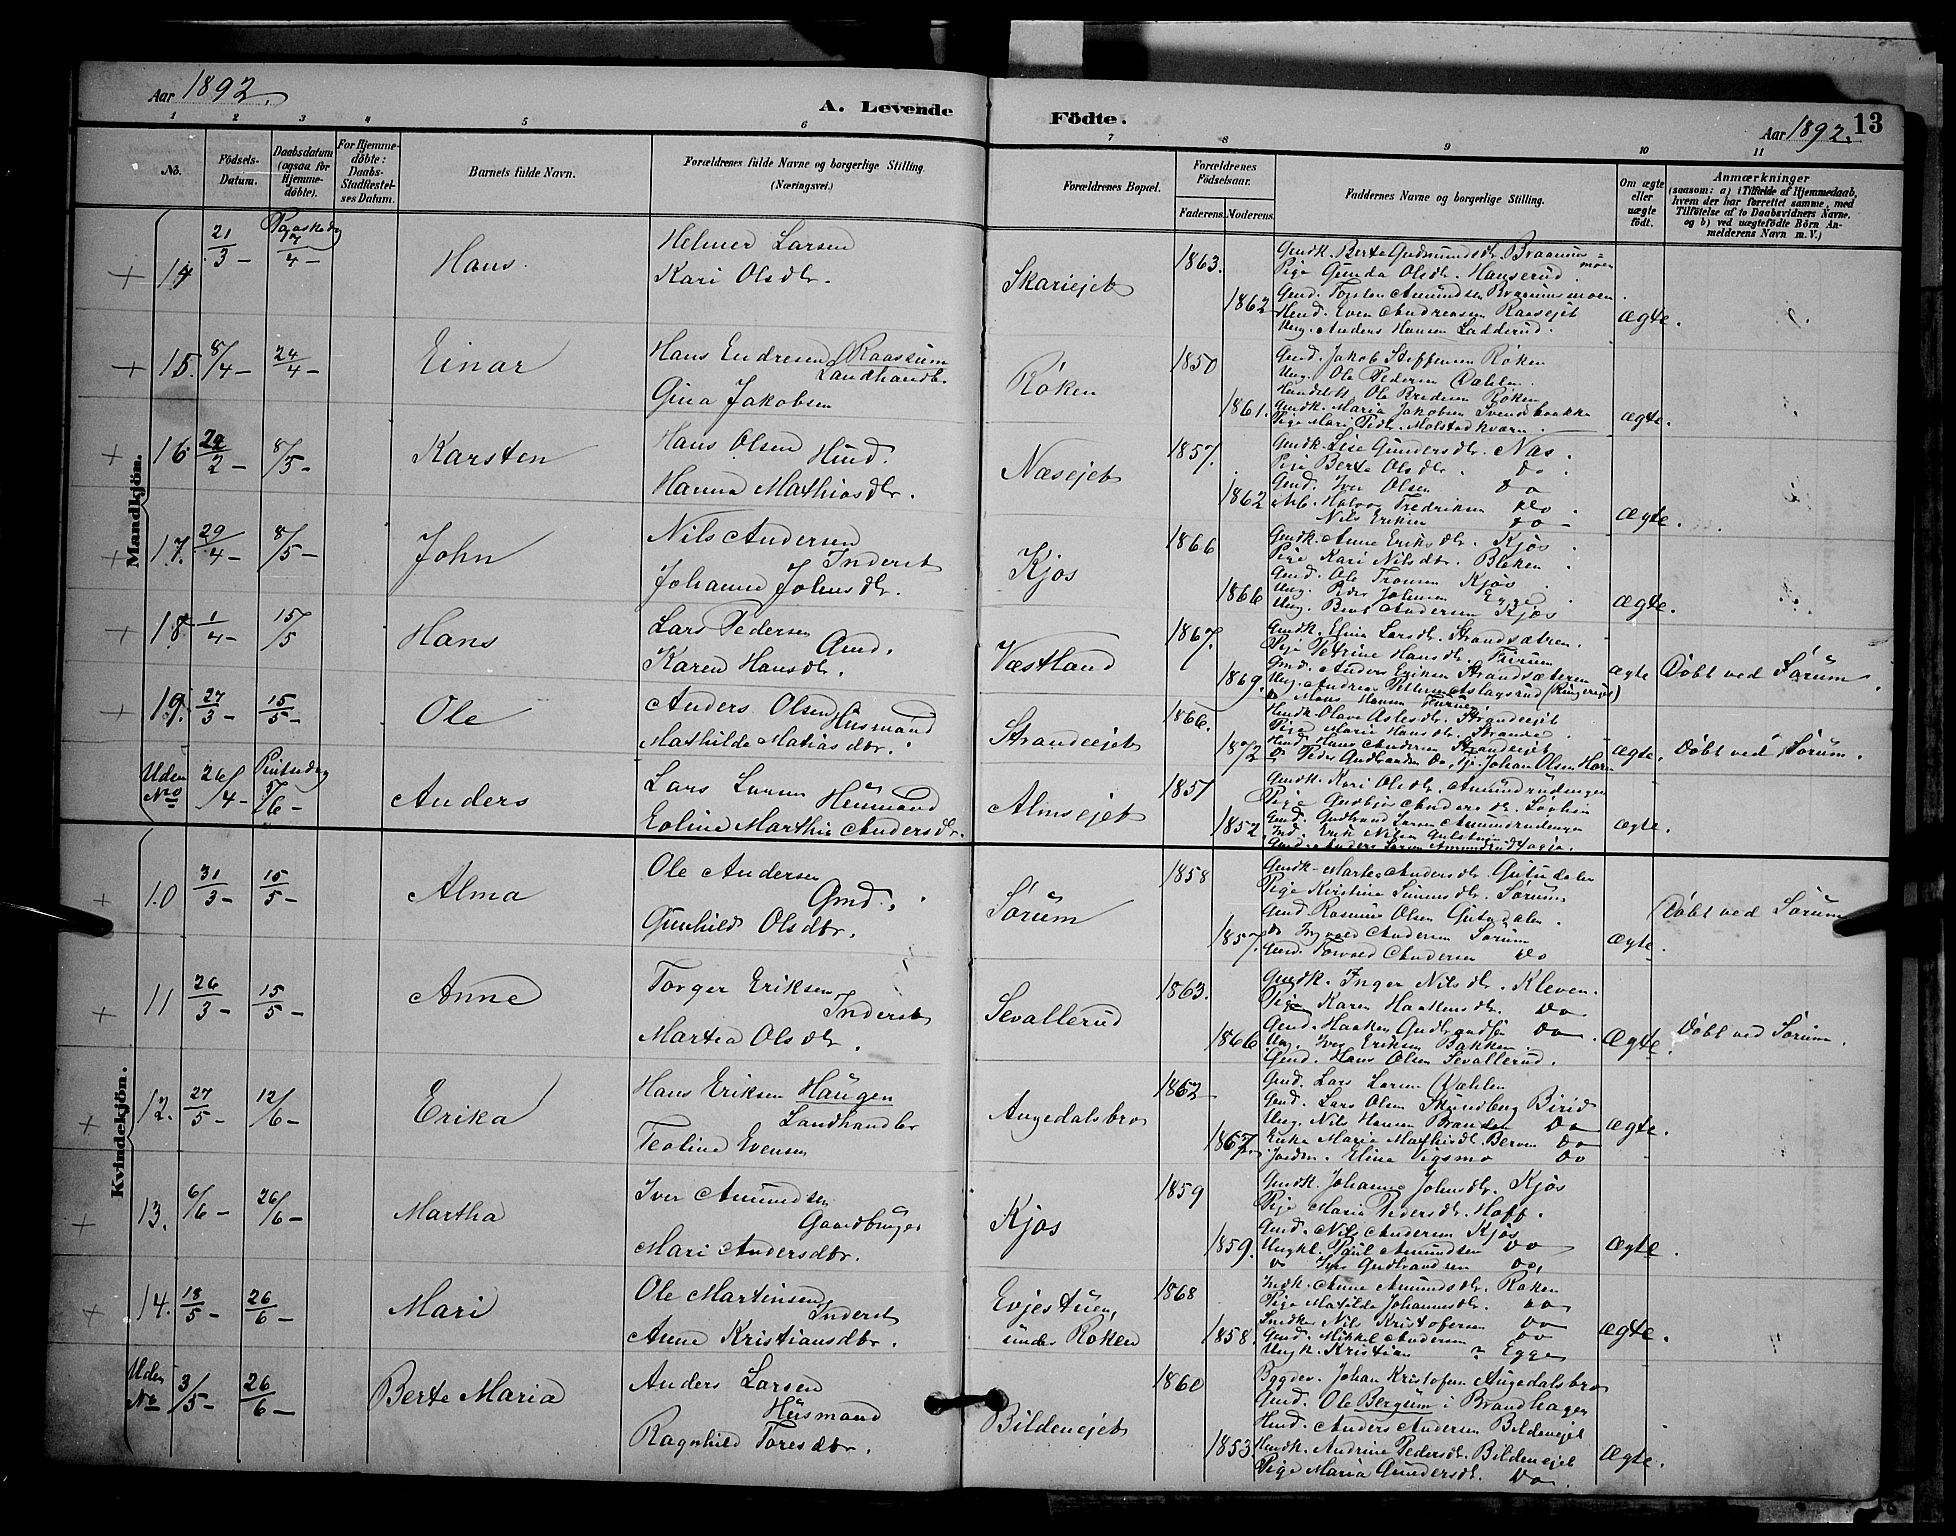 Aar 1892.
A. Levende Födte.
Aar 1892. 13
1 2 3 4 5 6 7 8 9 10 11
No.
Födsels-Datum.
Daabsdatum (ogsaa for Hjemme-döbte).
For Hjemme-döbte: Daabs-Stadfæstel-ses Datum.
Barnets fulde Navn.
Forældrenes fulde Navne og borgerlige Stilling. (Næringsvei.)
Forældrenes Bopæl.
Forældrenes Födselsaar.
Faderens. Moderens.
Faddernes Navne og borgerlige Stilling.
Om ægte eller uægte födt.
Anmærkninger
(saasom: a) i Tilfælde af Hjemmedaab, hvem der har forrettet samme, med Tilföielse af to Daabsvidners Navne, og b) ved uægtefödte Börn An-melderens Navn m. V.)
Mandkjön.
14 21/3 - Paaskedag 17/4 - Hans.
Helmer Larsen
Kari Olsdtr.
Skariejet 1863. 1862
Gmdk. Berte Gudmundsdtr. Braamns=moen
Pige Gunda Olsdtr. Hanserud.
Gmd. Torsten Amundsen Braamsmoen.
Hmd. Even Andreassen Raasejet
Ung. Anders Hansen Ladderud.
ægte.
15. 8/4 - 24/4 - Einar
Hans Endresen Raassum
Landhandlr.
Gina Jakobsen
Røken 1850 1861.
Gmd. Jakob Steffensen Røken
Ung. Ole Pedersen Dæhlen.
Handelsb. Ole Bredesen Røken
Gmdk. Maria Jakobsen Svendsbakke
Pige Mari Pedr. Molstadkværn.
ægte.
16 29/2 - 8/5 - Karsten
Hans Olsen Hmd.
Hanna Mathiasdtr.
Næsejet 1857. 1862
Gmdk. Lise Gundersdtr. Næs.
Pige Berte Olsdtr. Do.
Gmd. Iver Olsen Do
Arb. Halvor Fredriksen Do.
Nils Eriksen Do
ægte.
17. 29/4 - 8/5 - John
Nils Andersen
Inderst
Johanne Johnsdtr.
Kjos 1866 1866
Gmdk. Anne Eriksdtr. Kjøs.
Pige Kari Nilsdtr. Bløken
Gmd. Ole Tronsen Kjøs.
Ung. Peder Johnsen Egge.
Ung. Bent Andersen Kjøs
ægte.
18. 1/4 - 15/5 Hans
Lars Pedersen
Gmd.
Karen Hansdtr.
Væstland 1867. 1869.
Gmdk. Elina Larsdtr. Strandsætren.
Pige Petrine Hansdtr. Furum
Gmd. Anders Eriksen Strandsæteren
Ung. Andreas Pettersen Aslagsrud (Ringerige)
Do Mons Hansen Furue.
ægte Döbt ved Sørum.
19. 27/3 - 15/5 - Ole
Anders Olsen
Husmand
Mathilde Matiasdtr.
Strandeejet 1866. 1872
Hmdk. Olave Aslesdtr. Strandeejet
Pige Marie Hansdtr. Strande.
Hmd. Hans Andersen Strandeejet
Do Peder Gudbrandsen Do, Tj. Johan Olsen Horn
ægte. Döbt ved Sørum.
Uden No 26/4 - Pintsedag 5/6 - Anders
Lars Larsen Husmand
Eoline Marthia Andersdtr.
Almsejet 1857 1852.
Gmdk. Kari Olsdtr. Amundrudengen
Pige Gudbjør Andersdtr. Løvlien
Gmd. Gudbrand Larsen Amundrudengen
Ind. Erik Nilsen Gulstuen
Gmd. Anders Larsen Amundrudhagje.
ægte.
Kvindekjön.
10 31/3 - 15/5 - Alma
Ole Andersen
Gmd.
Gunhild Olsdtr.
Sørum 1858 1857.
Gmdk. Marte Andersdtr. Gutudalen
Pige Kristine Simensdtr. Sørum
Gmd. Rasmus Olsen Gutudalen.
Do Ingvald Andersen Sørum
Gmd. Torvald Andersen Do
ægte. Döbt ved Sørum
11 26/3 - 15/5 - Anne
Torger Eriksen
Inderst
Martea Olsdtr.
Sevallerud 1863. 1866
Gmdk. Inger Nilsdtr. Kleven.
Pige Karen Haakensdtr. Do
Gmd. Haaken Gudbrandsen Do
Ung. Iver Eriksen Bakken.
Gmd. Hans Olsen Sevallerud.
Ægte. Döbt ved Sørum.
12. 27/5 - 12/6 - Erika
Hans Eriksen Haugen
Landhandler
Teoline Evensen
Augedalsbro 1862 1867.
Gmd. Lars Larsen Dæhlen
Gmd. Lars Olsen Skundberg Birid
Ung. Nils Hansen Branden Do
Enke Marie Mathisdtr. Berven Do
Jordm. Eline Vigsmo Do
ægte.
13. 6/6 - 26/6 - Martha
Iver Amundsen
Gaardbruger
Mari Andersdtr.
Kjøs 1859 1859.
Gmdk. Johanne Johnsdtr. Kjøs
Pige Maria Pedersdtr. Hoff.
Gmd. Nils Andersen Kjøs
Ungkl. Paul Amundsen Do
Do Iver Gudbrandsen Do,
ægte.
14. 18/5 - 26/6 - Mari
Ole Martinsen
Inderst
Anne Kristiansdtr.
Evjestuen,
under Røken 1868 1858.
Indk. Anne Amundsdtr. Røken
Pige Matilde Johannesdtr. Do
Smedk. Nils Kristofersen Do
Gmd. Mikkel Andersen Do
Ungk. Kristian ? Egge
ægte.
Uden No 3/5 - 26/6 - Berte Maria
Anders Larsen
Husmand
Ragnhild Toresdtr.
Bildenejet 1860 1853.
Bygdev. Johan Kristofersen Augedalsbro
Gmd. Ole Bergum i Brandhagen
Hmd. Anders Andersen Bildenejet
Hmdk. Andrine Pedersdtr. Bildenejet
Pige Maria Gundersdtr. Do
Ægte.